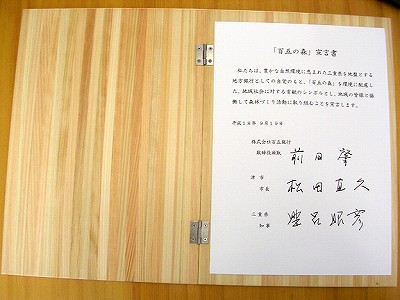 「百五の森」宣言書
私たちは、豊かな自然環境に恵まれた三重県を地盤とする
地方銀行としての自覚のもと、「百五の森」を環境に配慮し
た、地域社会に対する貢献のシンボルとし、地域の皆様と協
働して森林づくり活動に取り組むことを宣言します。
平成18年 9月19日
株式会社百五銀行
取締役頭取 前田肇
津市
市長 松田直久
三重県
知事 野呂昭彦